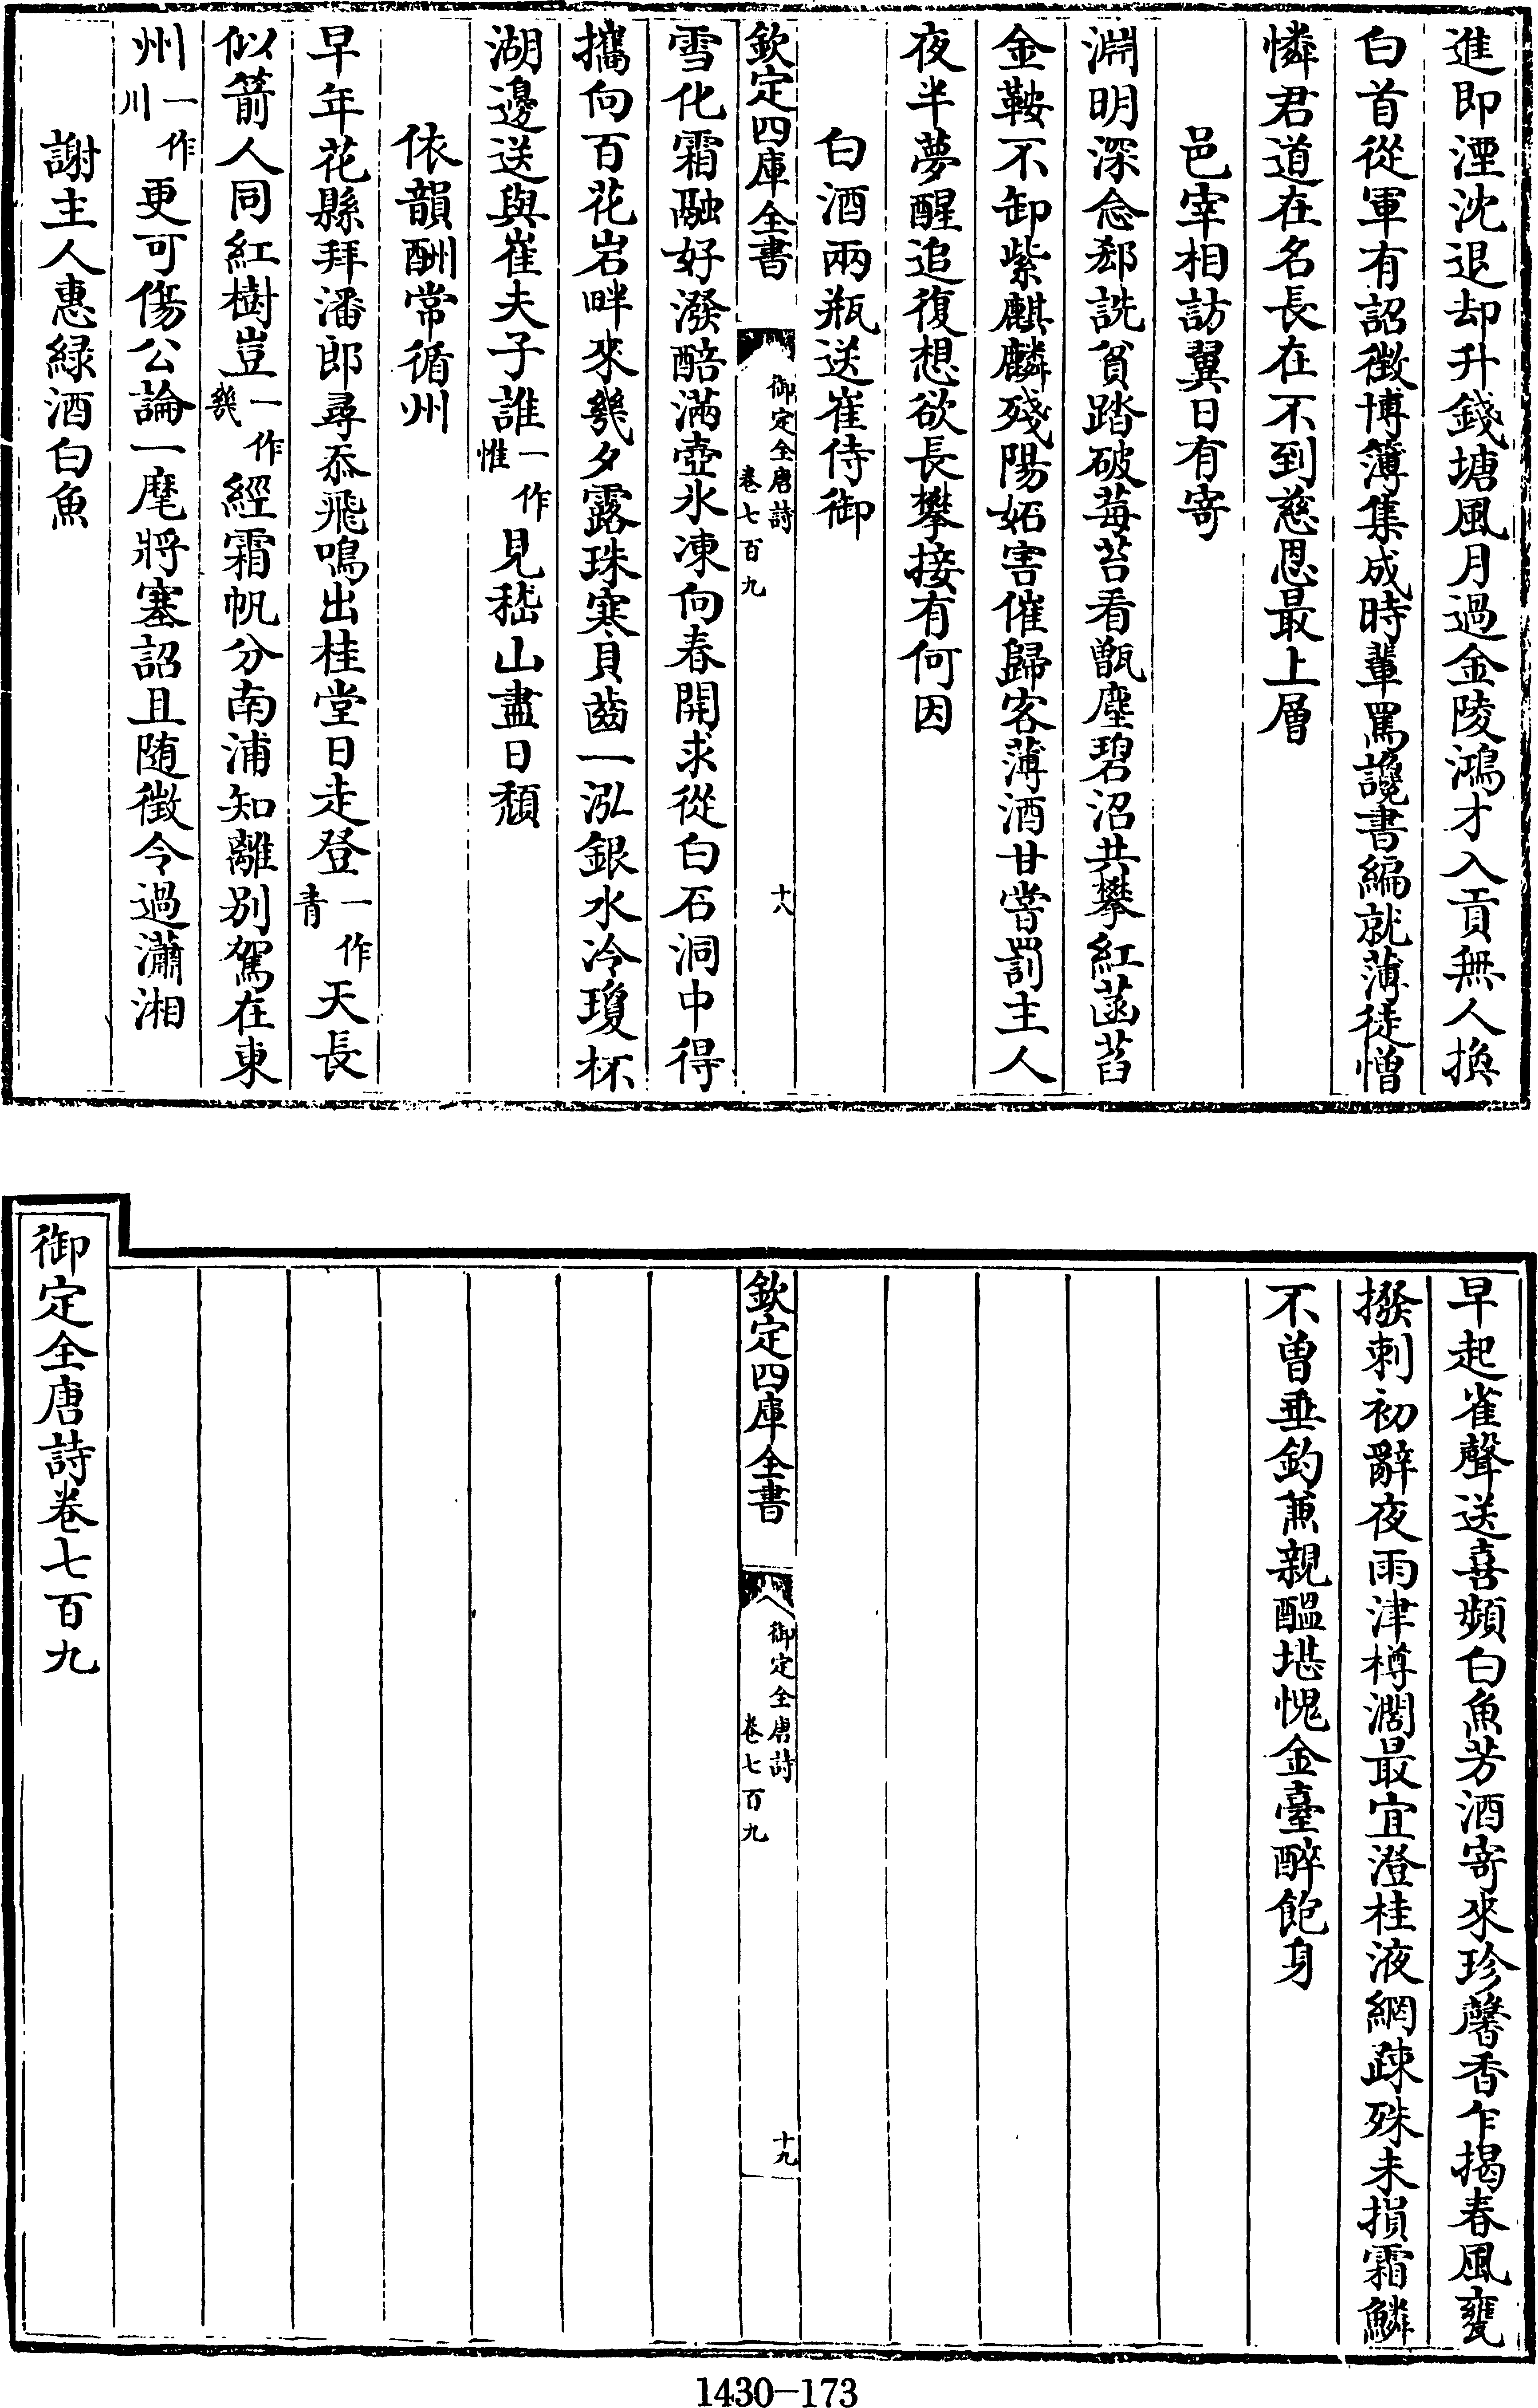 進即湮沈退却升錢塘風月過金陵鴻才入貢無人換
白首從軍有詔徴博簿集成時輩罵讒書編就薄徒憎
憐君道在名長在不到慈恩最上層
邑宰相訪翼日有寄
淵明深念郄詵貧踏破莓苔看甑塵碧沼共攀紅菡萏
金鞍不卸紫麒麟殘陽妬害催歸客薄酒甘嘗罰主人
夜半夢醒追復想欲長攀接有何因
白酒兩瓶送崔侍御
欽定四庫全書
御定全唐詩
卷七百九
十八
雪化霜融好潑醅滿壺氷凍向春開求從白石洞中得
攜向百花岩畔來幾夕露珠寒貝齒一泓銀水冷瓊杯
湖邊送與崔夫子誰一作惟見嵇山盡日頽
依韻酬常循州
早年花縣拜潘郎尋忝飛鳴出桂堂日走登一作青天長
似箭人同紅樹豈一作幾經霜帆分南浦知離別駕在東
州一作川更可傷公論一麾將塞詔且随徴令過瀟湘
謝主人惠緑酒白魚
早起雀聲送喜頻白魚芳酒寄來珍馨香乍揭春風甕
撥刺初辭夜雨津樽濶最宜澄桂液網疎殊未損霜鱗
不曽垂釣兼親醖堪愧金臺醉飽身
欽定四庫全書
御定全唐詩
卷七百九
十九
御定全唐詩卷七百九
1430-173